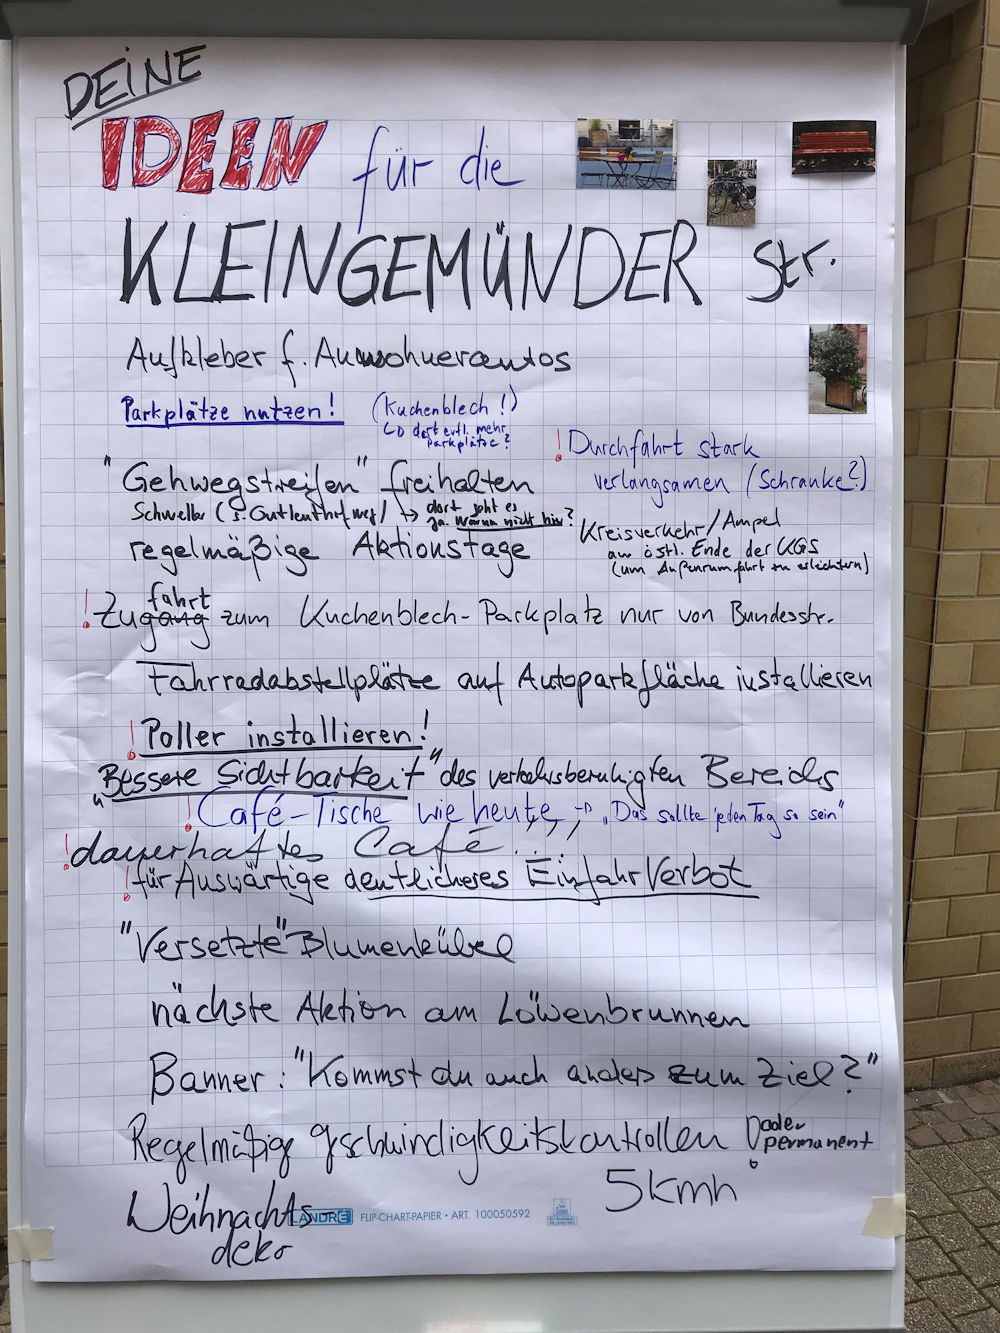 DEINE
IDEEN für die
KLEINGEMÜNDER Str.
Aufkleber f. Anwohnerautos
Parkplätze nutzen! (Kuchenblech!)
↳ dort evtl. mehr
Parkplätze?
! Durchfahrt stark
verlangsamen (Schranke?)
"Gehwegstreifen" freihalten
Schwellen (s. Gutleuthofweg) → dort geht es
ja. Warum nicht hier?
Kreisverkehr/Ampel
am östl. Ende der KGS
(um Außenrumfahrt zu erleichtern)
regelmäßige Aktionstage
! Zugang fahrt zum Kuchenblech-Parkplatz nur von Bundesstr.
Fahrradabstellplätze auf Autoparkfläche installieren
! Poller installieren!
"Bessere Sichtbarkeit" des verkehrsberuhigten Bereichs
! Café-Tische wie heute → "Das sollte jeden Tag so sein"
! dauerhaftes Café...
! für Auswärtige deutlicheres EinfahrVerbot
"Versetzte" Blumenkübel
nächste Aktion am Löwenbrunnen
Banner: "Kommst du auch anders zum Ziel?"
Regelmäßige gschwindigkeitskontrollen oder
permanent
!
5kmh
Weihnachts-
deko
LANDRÉ FLIP-CHART-PAPIER • ART. 100050592